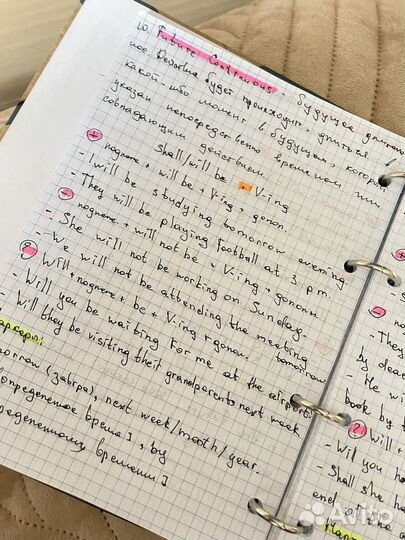 10. Future Continuous - будущее длительное
ное. Действие будет происходить, длиться
в какой-либо момент в будущем, который
указан непосредственно временем или
совпадающим действием.
Shall/will be + V-ing
+ подлеж + will be + V-ing + допол.
- I will be studying tomorrow evening.
- They will be playing football at 3 p.m.
- подлеж + will not be + V-ing + дополн
- She will not be working on Sunday.
- We will not be attending the meeting tomorrow
? Will + подлеж + be + V-ing + дополн.
- Will you be waiting for me at the airport?
- Will they be visiting their grandparents next week
маркеры:
tomorrow (завтра), next week/month/year.
определенное время], by
определенному времени]
- подлеж
- They
by dea
- He wi
book by t
? Will +
- Will you ha
- Shall she ha
end of the
Марк
Avito